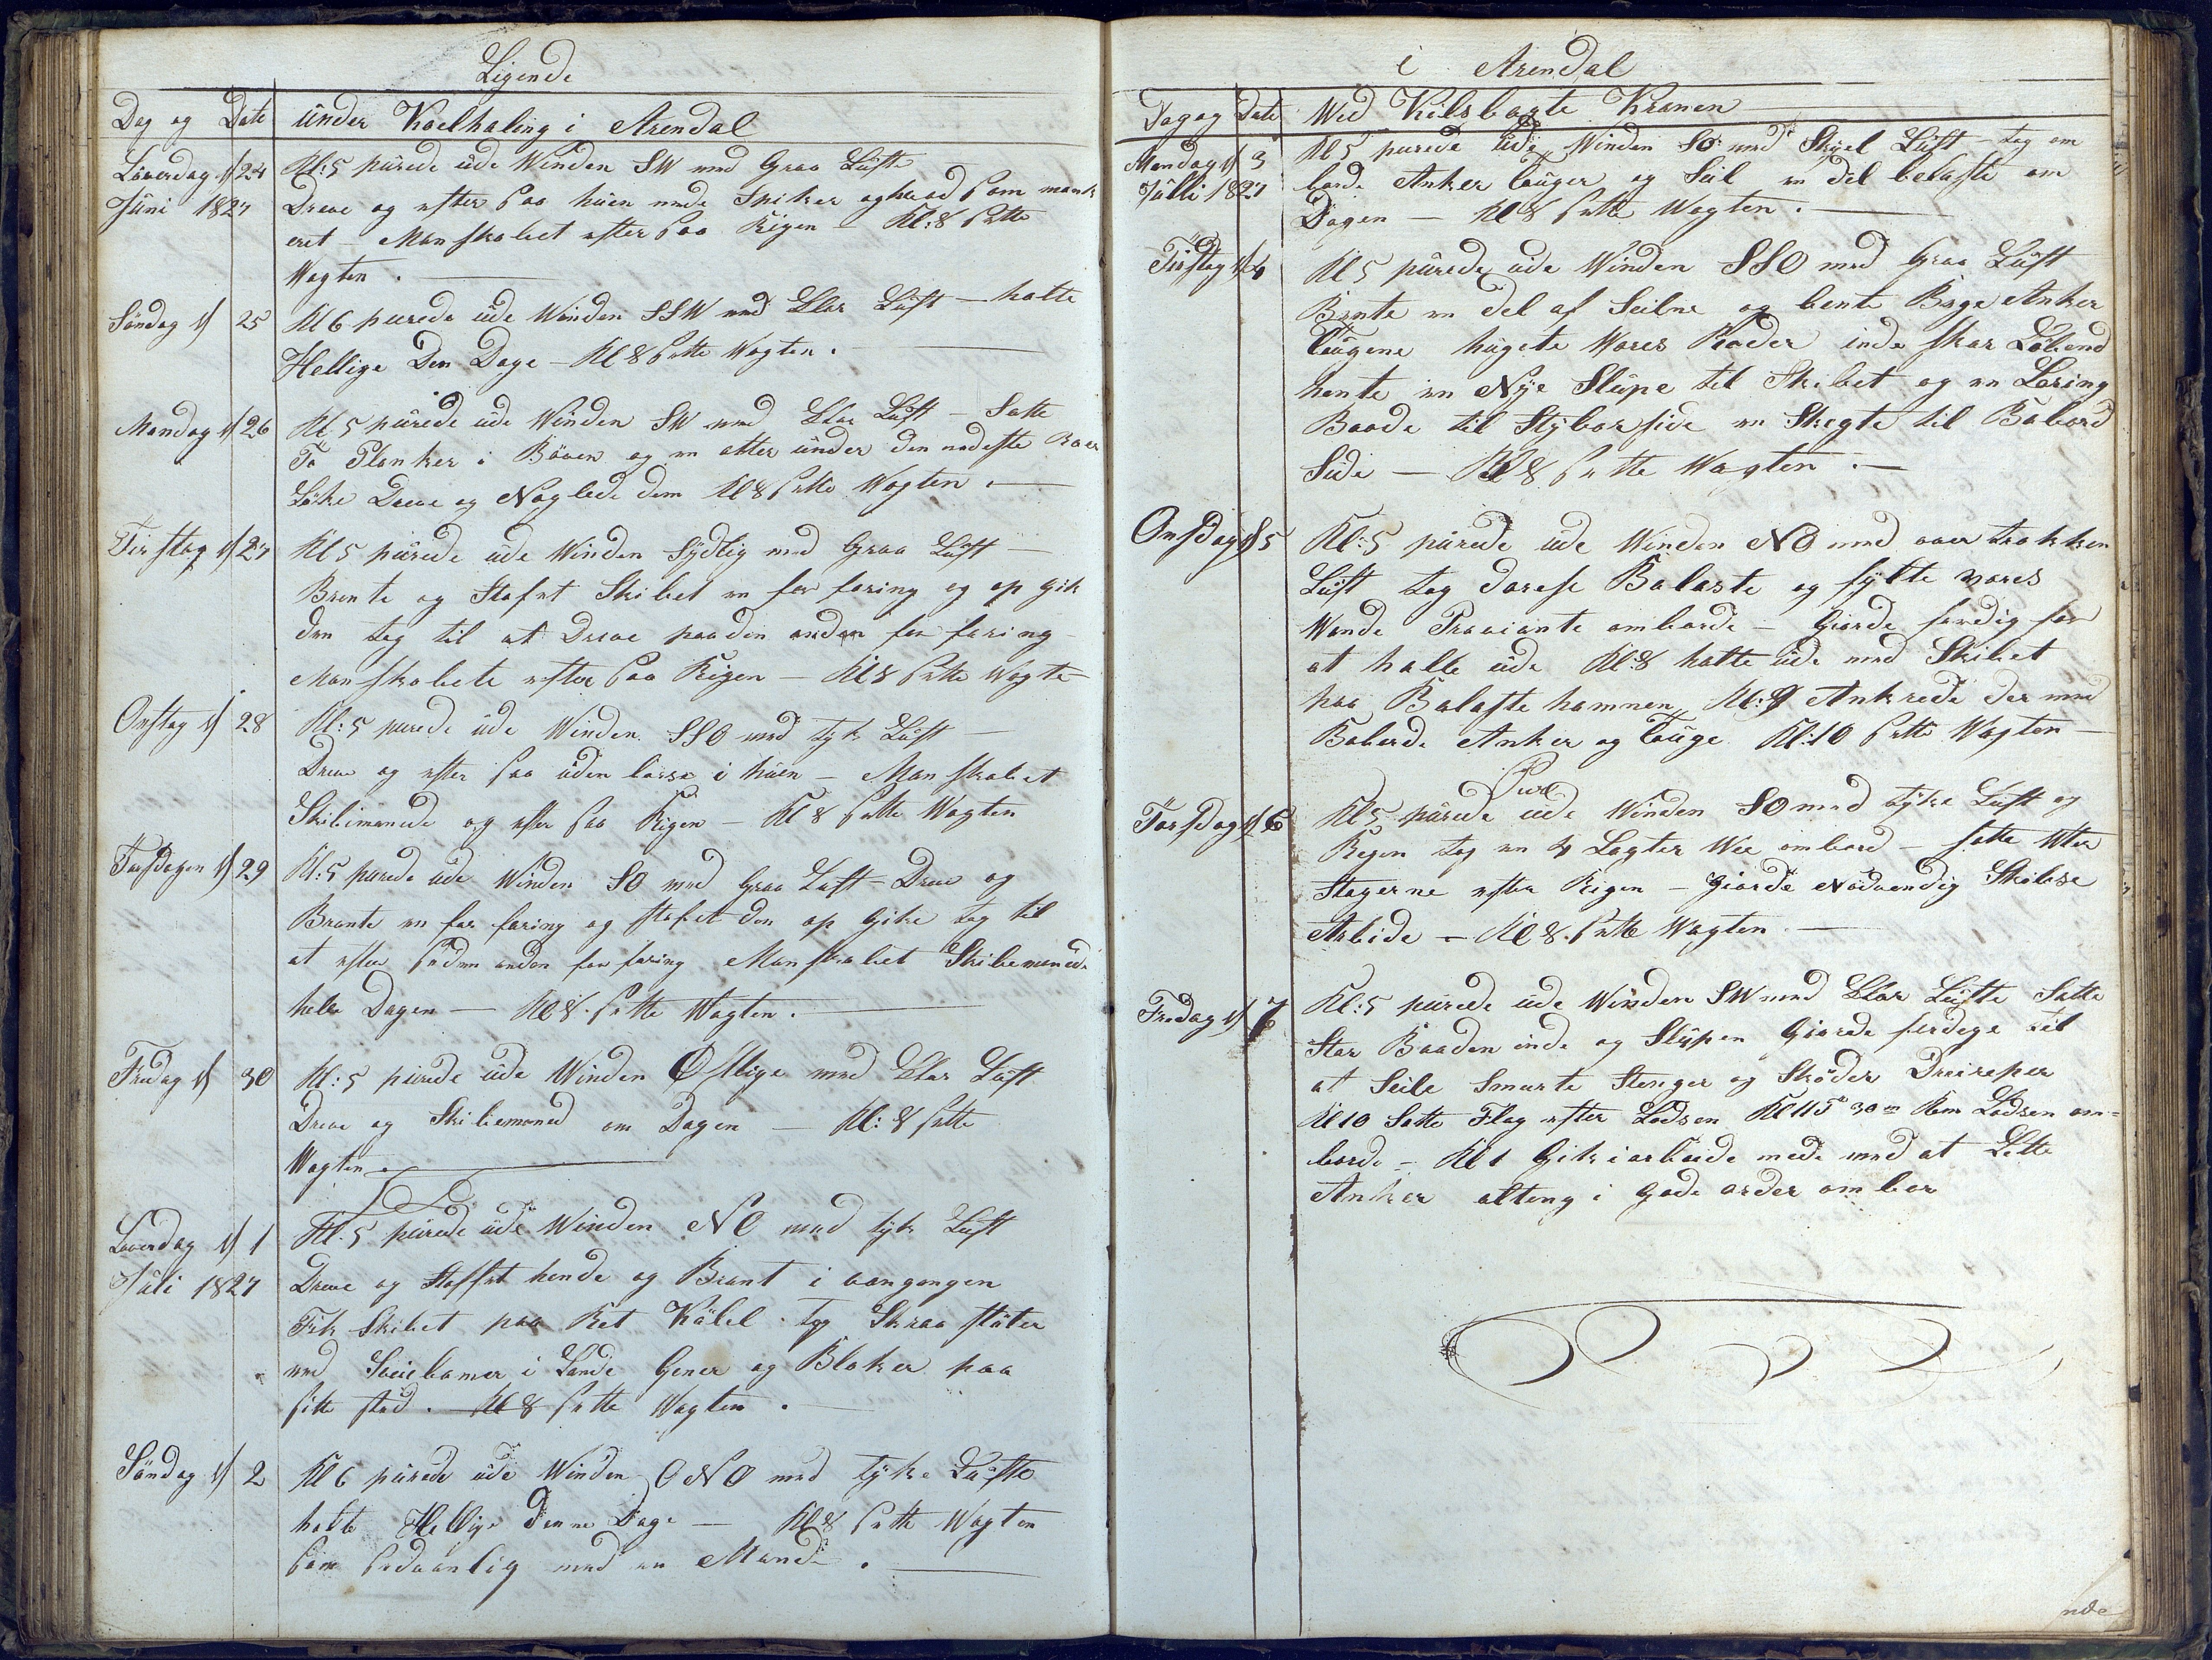 Ligende
Dag og Date under Kaelhaling i Arendal
Løverdag d 24 Kl: 5 purede ude Winden SW med Graa Luft
Juni 1827 Dreve og efter saa huen mede Spiker og hvad som mank
eret - Manskabet efter saa Rigen - Kl: 8 satte
Wagten.
Søndag d 25 Kl 6 purede ude Winden SSW med Klar Luft - holte
Hellige Den Dage - Kl 8 satte Wagten.
Mandag d 26 Kl. 5 purede ude Winden SW med Klar Luft - Satte
To Planker i Bouen og en atter under den nedeste
Dreve og Naglede dem Kl 8 satte Wagten.
Tirstag d 27 Kl 5 purede ude Winden Sydlig med Graa Luft -
Brente og Stofet Skibet en for faring og op gik
den tog til at Dreve paa den anden for faring -
Manskabete efter saa Rigen - Kl 8 satte Wagte
Onstag d 28 Kl: 5 purede ude Winden SSO med tyk Luft -
Dreve og efter saa uden borse i huen - Manskabet
Skibimanede og efter saa Rigen - Kl 8 satte Wagten
Torsdagen d 29 Kl: 5 purede ude Winden SO med Graa Luft - Dreve og
Brante en for faring og stofet den op Gike tog til
at efter paa den anden for faring Manskabet Skibemanede
hele Dagen - Kl 8. satte Wagten.
Fredag d 30 Kl: 5 purede ude Winden Østlige med Klar Luft
Dreve og Skibemaned om Dagen - Kl: 8 satte
Wagten.
Løverdag d 1 Kl. 5 purede ude Winden NO med tyk Luft
Juli 1827 Dreve og Stoffet hende og Brant i vangangen
Fik Skibet paa Ret Kølel. tog Skraa støter
med Sveibomer i Lande Gener og Bloker paa
sitte sted. - Kl 8 satte Wagten.
Søndag d 2 Kl 6 purede ude Winden ONO med tyke Lufte
holte Hellige denne Dage - Kl 8 satte Wagten
som sedvanlig med en Mand.
i Arendal
Dag og Date Wed Kilsbogte Kranen
Mandag d 3 Kl 5 purede ude Winden SO med Skyel Luft - tog om
Julli 1827 borde Anker touger og Seil en del belaste om
Dagen - Kl 8 satte Wagten.
Tirstag d 4 Kl 5 purede ude Winden SSO med Graa Luft
Bente en del af Seilne og bente Böge Anker
tougene hugete Wores Rader inde skar Löbend
hente en Nÿe Slupe til Skibet og en Loring
Baade til Stÿborside en Skegte til Babord
Side - Kl 8 satte Wagten.
Onsdag d 5 Kl: 5 purede ude Winden NO med overtrokken
Luft tog Balaste og fylte vores
Wande Proviante omborde - Giorde ferdig for
at halle ude Kl: 8 halte ude med Skibet
paa Balaste hamnen, Kl: 9 Ankrede der med
Baborde Anker og Touge Kl: 10 satte Wagten -
Pure
Torsdag d 6 Kl 5 purede ude Winden SO med tyke Luft og
Regen tog en 4 Lagter Wee ombord - satte
Stagerne efter Rigen - giorde Nödvendig Skibse
Arbide - Kl 8. satte Wagten.
Fredag d 7 Kl: 5 purede ude Winden SW med Klar Lufte Satte
Stor Baaden inde og Slupen Giorde ferdige til
at Seile Smurte Stenger og Skøder Dreireper
Kl 10 Satte Flag efter Lodsen Kl 11 T 30 m Kom Lodsen om=
borde - Kl 1 Gik i arbeide mede med at Lette
Anker alteng i gode order om bor